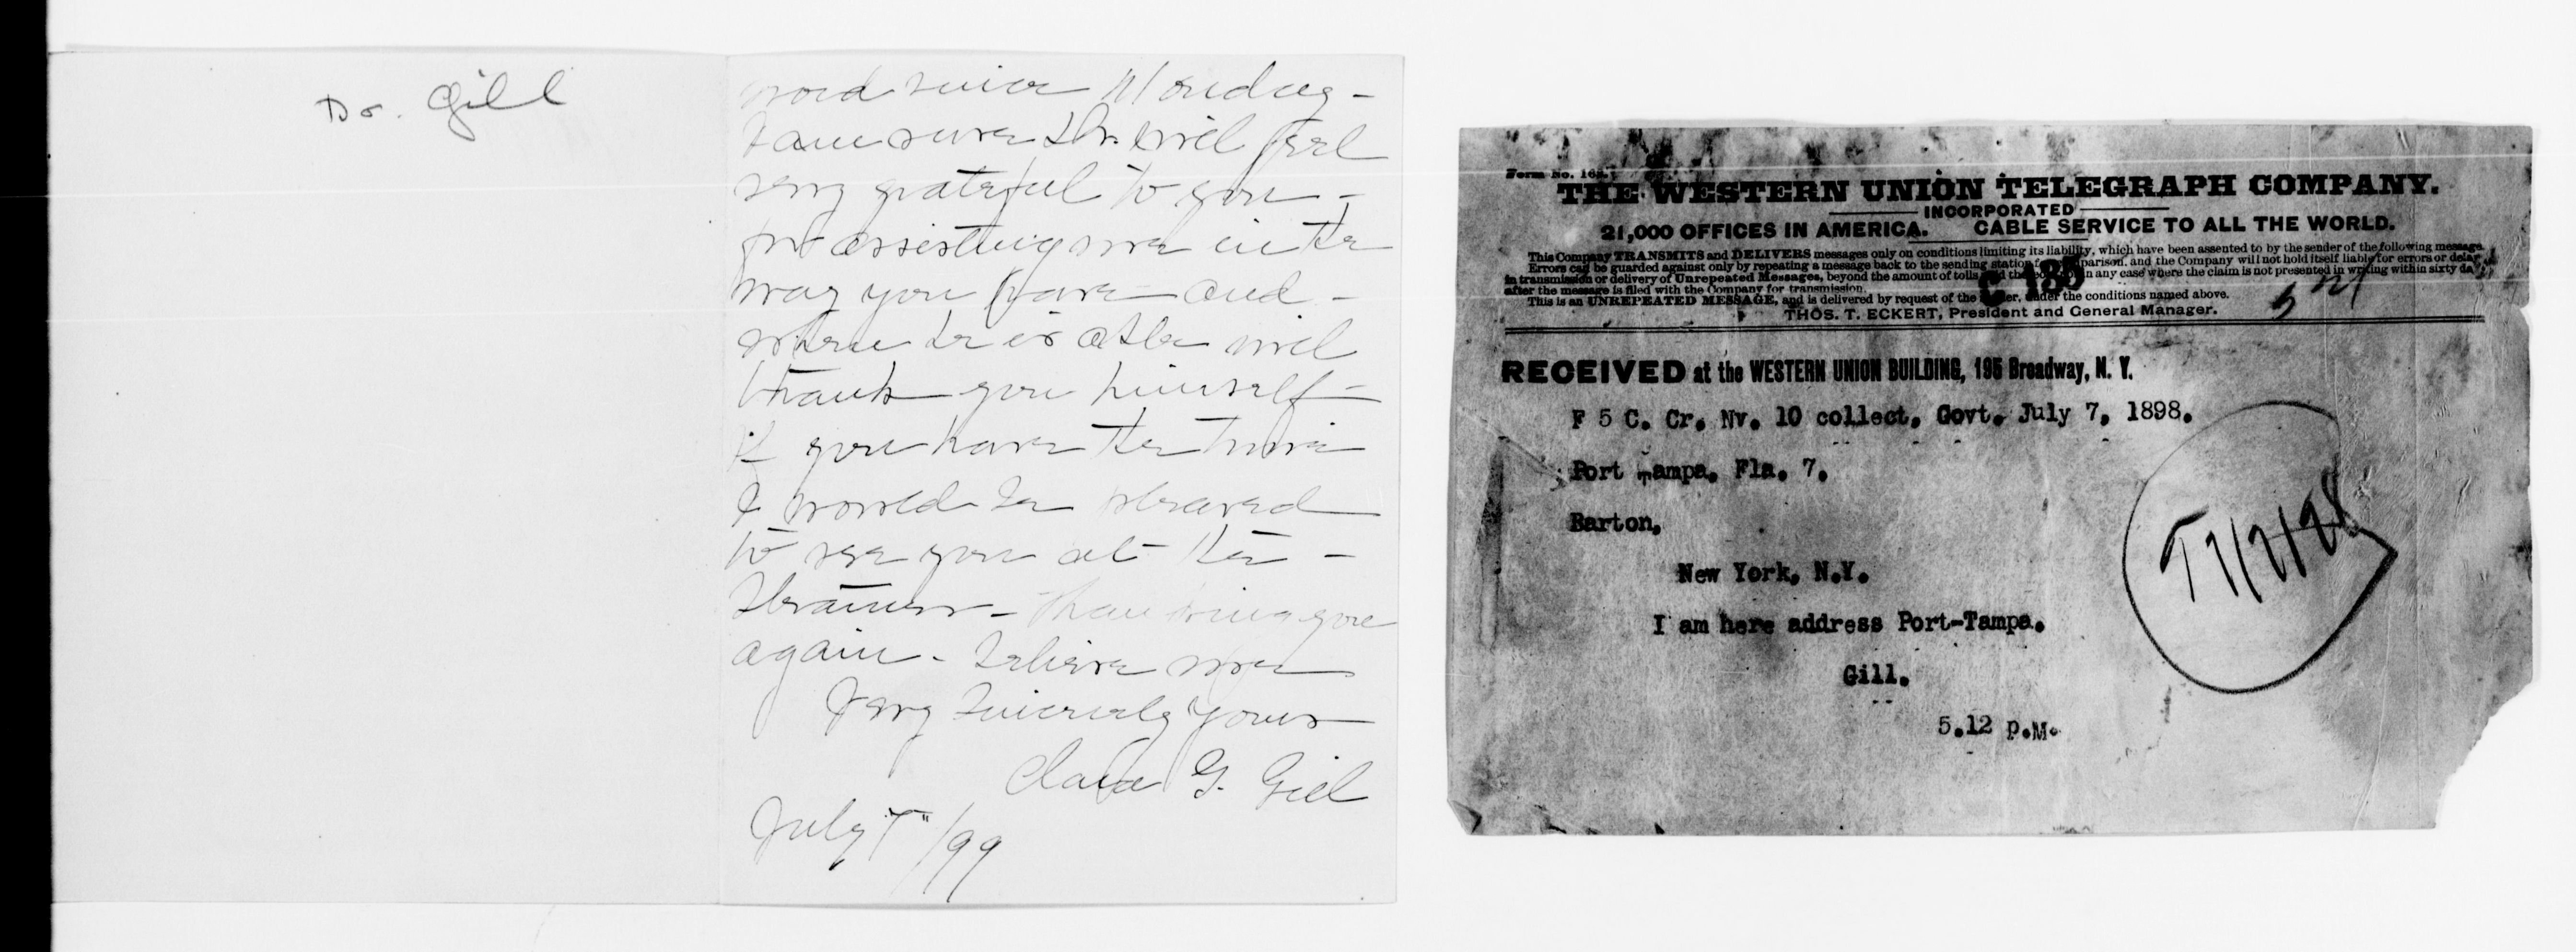 Dr. Gill
word since Monday -
I am sure Dr. will feel
very grateful to you -
for assisting me in the
way you have and -
when he is able will
thank you himself -
if you have the time
I would be pleased
to see you at the -
Steamer - Thanking you
again - believe me
Very Sincerely Yours
Clara G. Gill
July 7" /99
Form No. 168.
THE WESTERN UNION TELEGRAPH COMPANY.
INCORPORATED
21,000 OFFICES IN AMERICA. CABLE SERVICE TO ALL THE WORLD.
This Company TRANSMITS and DELIVERS messages only on conditions limiting its liability, which have been assented to by the sender of the following message.
Errors can be guarded against only by repeating a message back to the sending station for comparison, and the Company will not hold itself liable for errors or delays
in transmission or delivery of Unrepeated Messages, beyond the amount of tolls paid thereon, nor in any case where the claim is not presented in writing within sixty days
after the message is filed with the Company for transmission.
This is an UNREPEATED MESSAGE, and is delivered by request of the sender, under the conditions named above.
THOS. T. ECKERT, President and General Manager.
C 185
RECEIVED at the WESTERN UNION BUILDING, 195 Broadway, N. Y.
F 5 C. Cr. Nv. 10 collect. Govt. July 7, 1898.
Port Tampa. Fla. 7.
Barton,
New York, N.Y.
I am here address Port-Tampa.
Gill.
5.12 P.M.